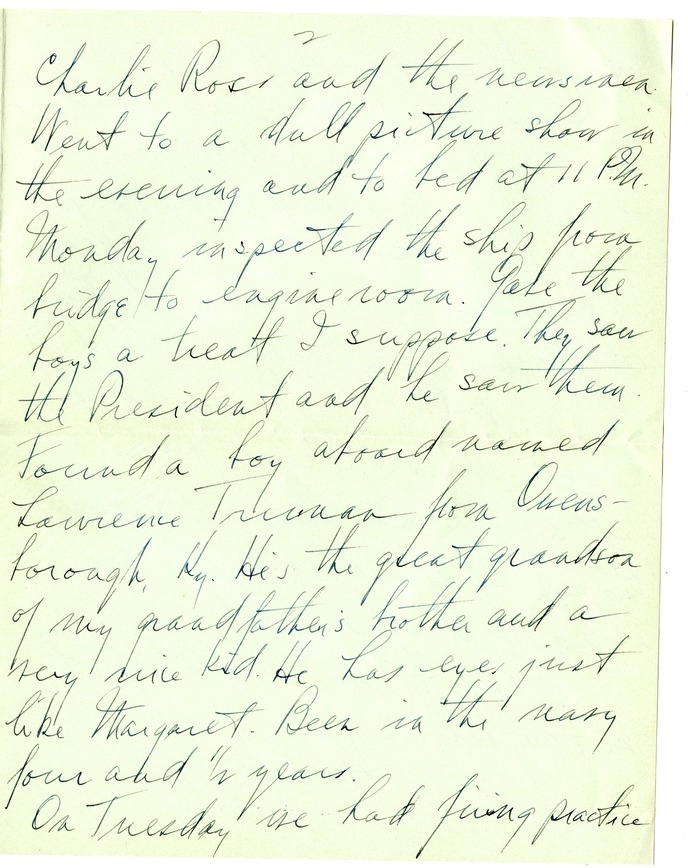 2
Charlie Ross and the newsmen.
Went to a dull picture show in
the evening and to bed at 11 P.M.
Monday inspected the ship from
bridge to engine room. Gave the
boys a treat I suppose. They saw
the President and he saw them.
Found a boy aboard named
Lawrence Truman from Owens-
borough, Ky. He's the great grandson
of my grandfather's brother and a
very nice kid. He has eyes just
like Margaret. Been in the navy
four and 1/2 years.
On Tuesday we had firing practice